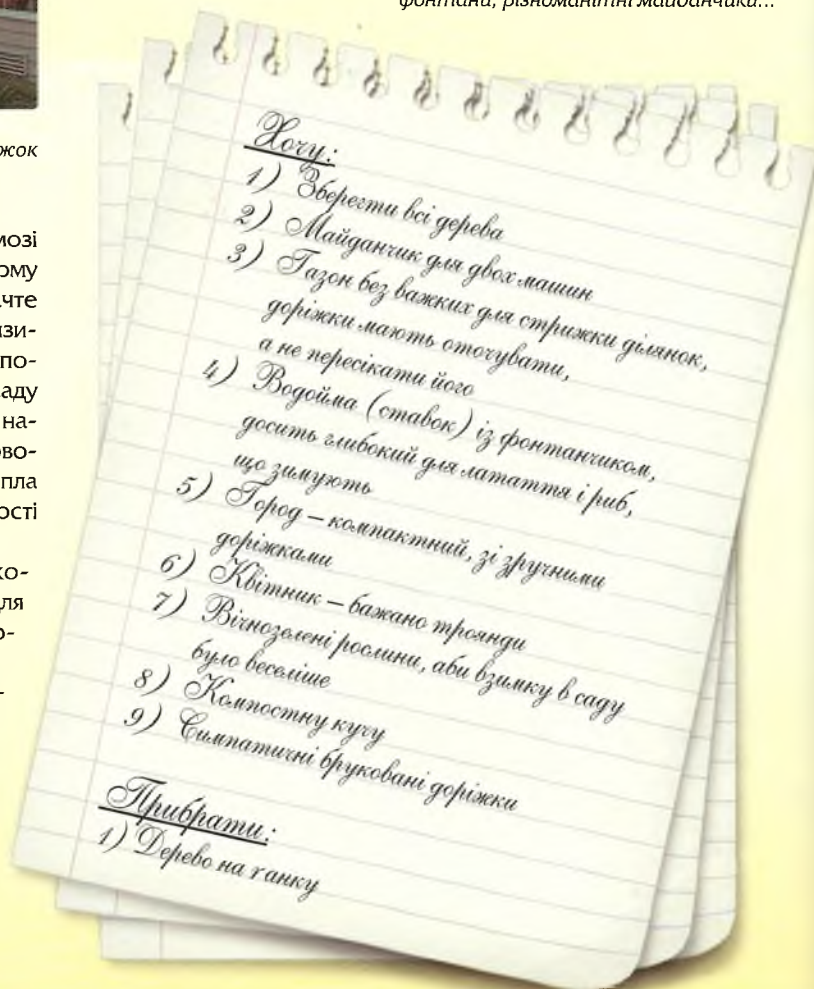 фонтани, різноманітні майданчики...
жок
мозі
ому
чте
изи-
по-
аду
на-
ово-
пла
ості
ко-
для
о-
-
Хочу:
1) Зберегти всі дерева
2) Майданчик для двох машин
3) Газон без важких для стрижки ділянок,
доріжки мають оточувати,
а не пересікати його
4) Водойма (ставок) із фонтанчиком,
досить глибокий для латаття і риб,
що зимують
5) Город – компактний, зі зручними
доріжками
6) Квітник – бажано троянди
7) Вічнозелені рослини, аби взимку в саду
було веселіше
8) Компостну кучу
9) Симпатичні бруковані доріжки
Прибрати:
1) Дерево на ґанку